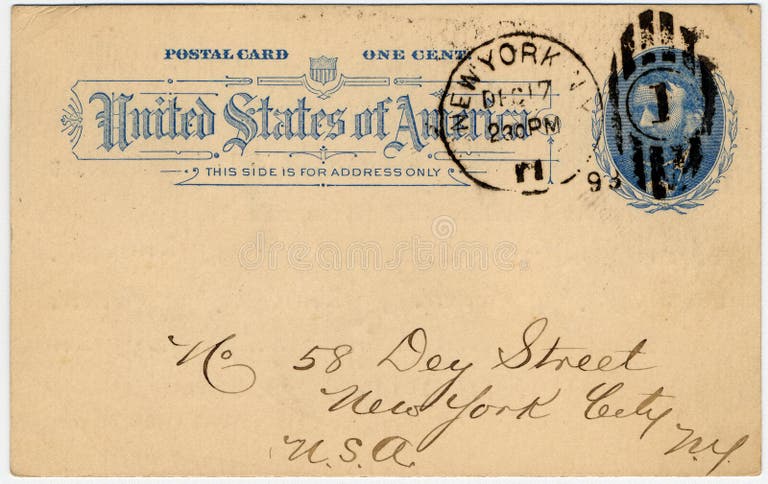 POSTAL CARD ONE CENT
United States of America
THIS SIDE IS FOR ADDRESS ONLY
NEW YORK N.Y.
DEC 17
230PM
93
1
dreamstime
No 58 Dey Street
New York City
U.S.A. N.Y.